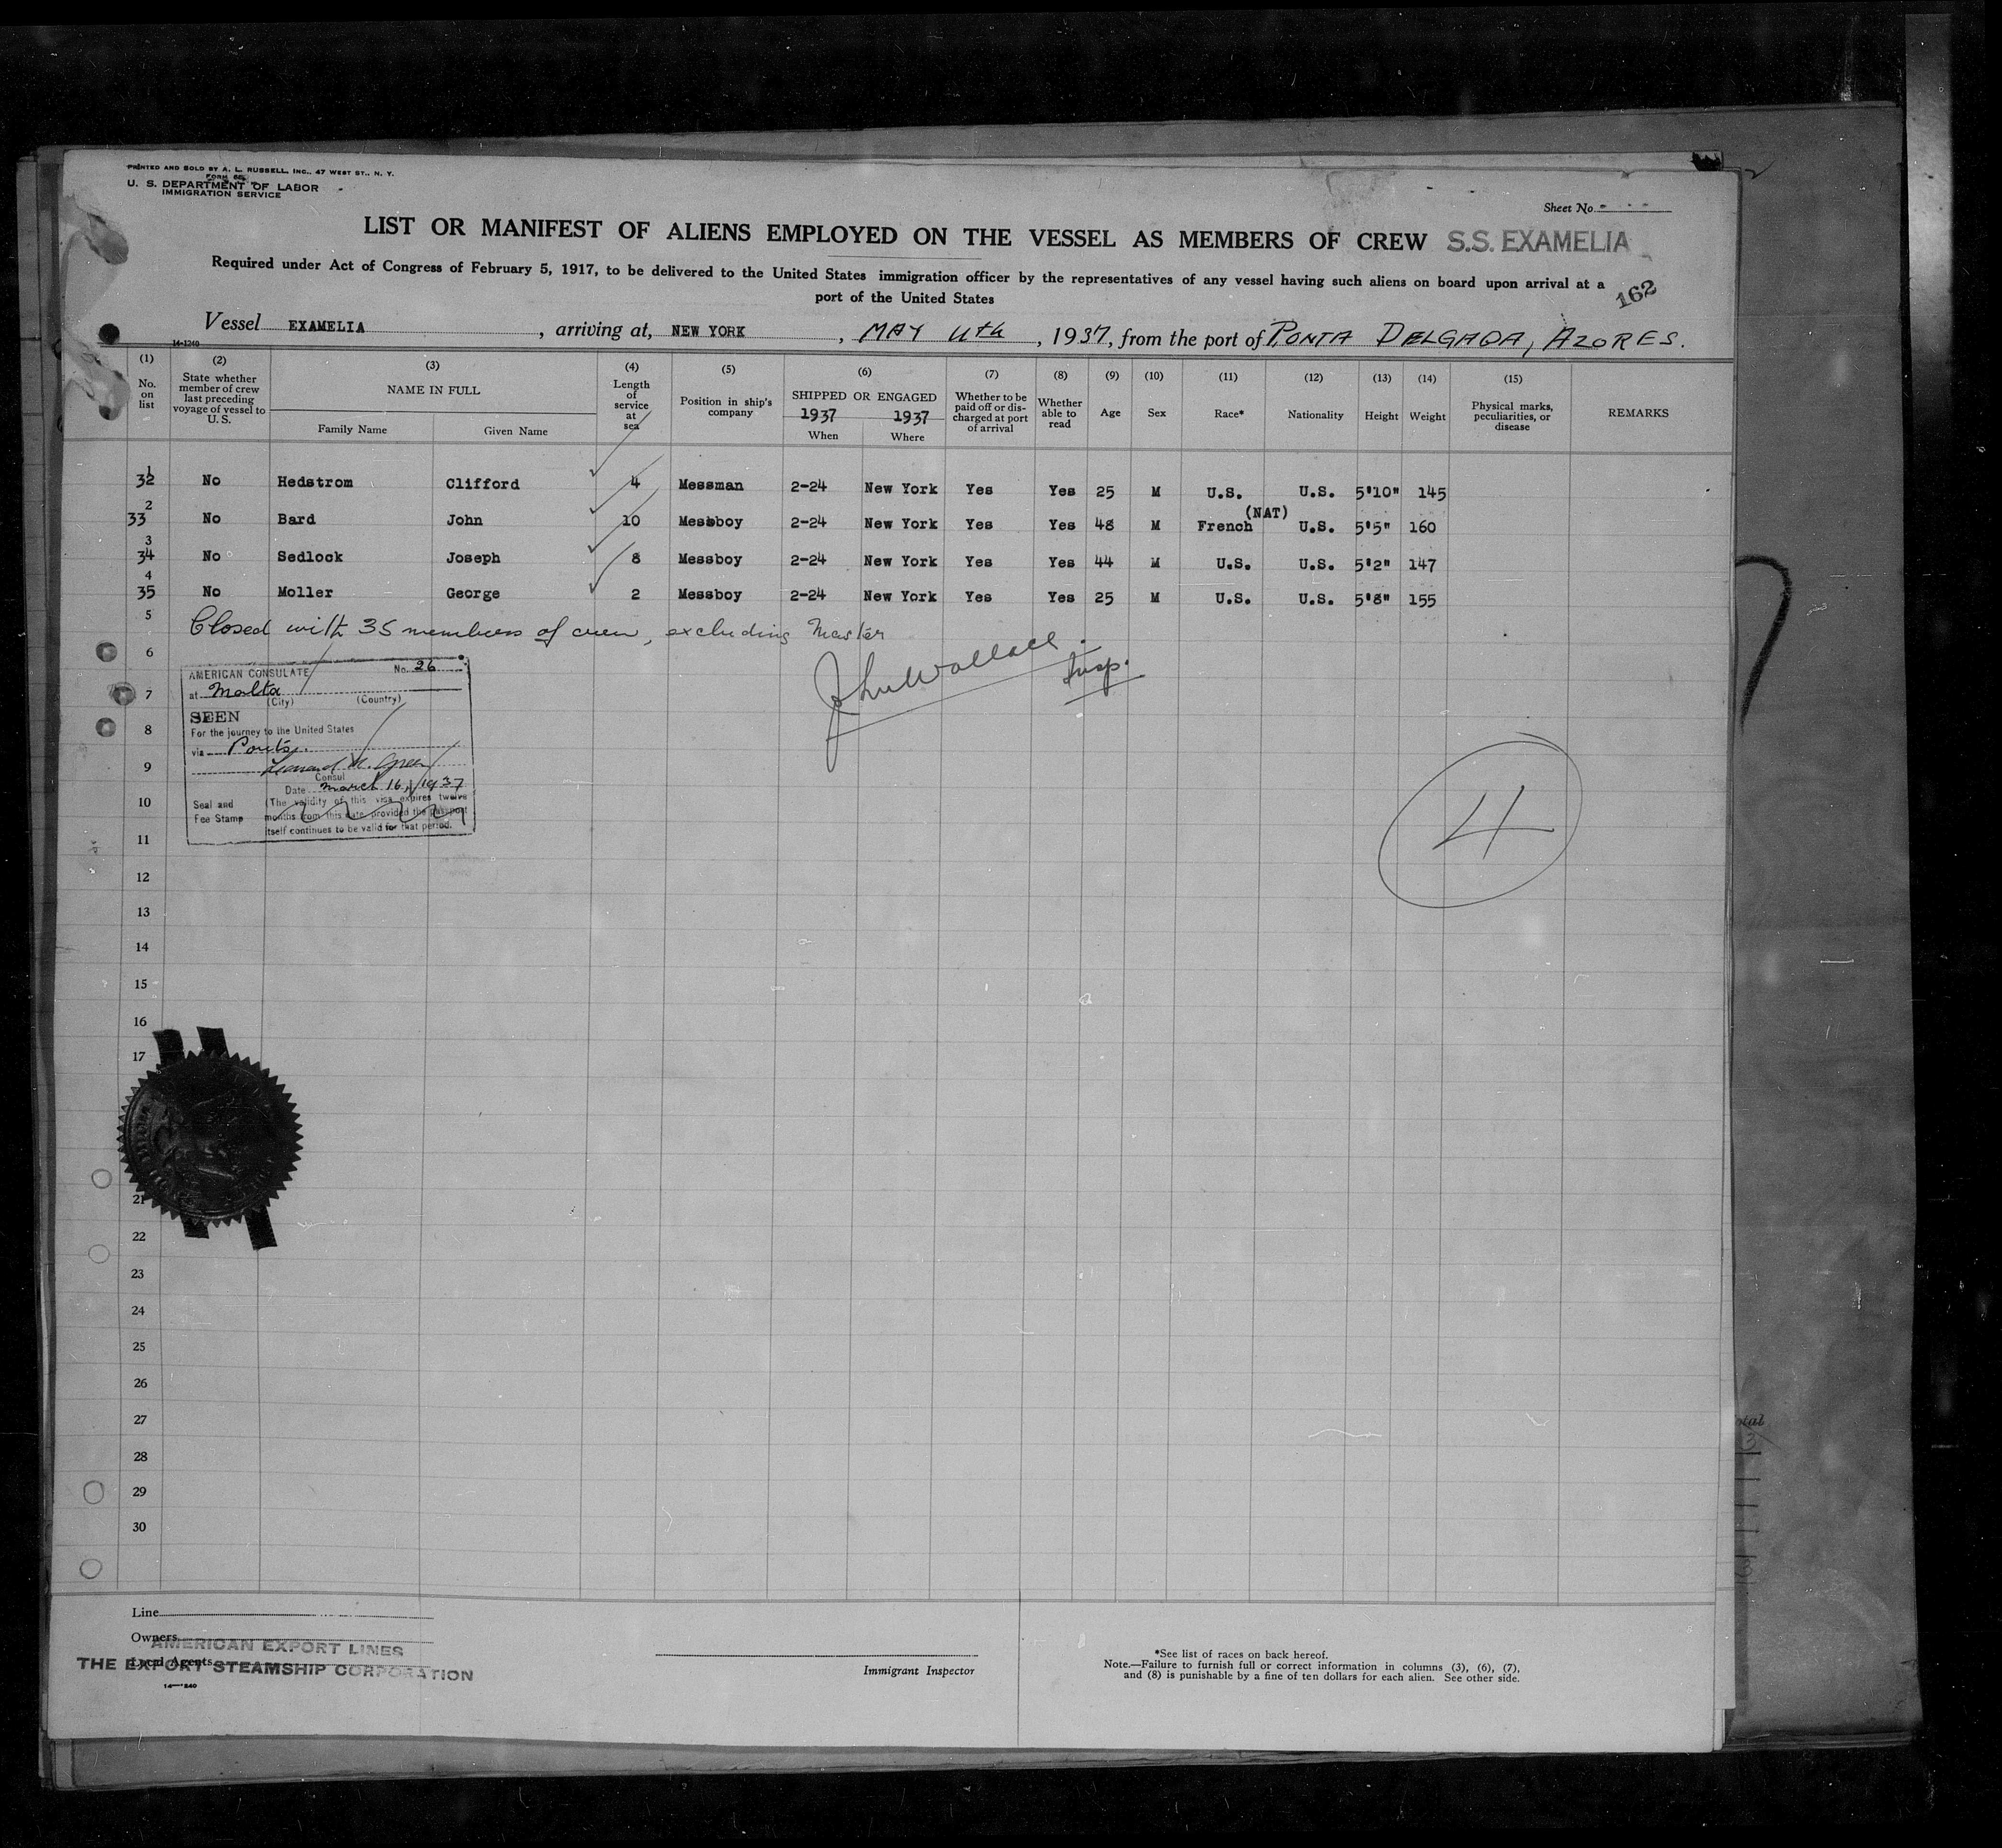 PRINTED AND SOLD BY A. L. RUSSELL, INC., 47 WEST ST., N. Y.
U. S. DEPARTMENT OF LABOR
IMMIGRATION SERVICE
Sheet No.
LIST OR MANIFEST OF ALIENS EMPLOYED ON THE VESSEL AS MEMBERS OF CREW S.S. EXAMELIA
Required under Act of Congress of February 5, 1917, to be delivered to the United States immigration officer by the representatives of any vessel having such aliens on board upon arrival at a
port of the United States
162
Vessel EXAMELIA, arriving at, NEW YORK, MAY 4th, 1937, from the port of PONTA DELGADA, AZORES.
14-1240
(1) (2) (3) (4) (5) (6) (7) (8) (9) (10) (11) (12) (13) (14) (15)
No. on list
State whether member of crew last preceding voyage of vessel to U. S.
NAME IN FULL
Family Name Given Name
Length of service at sea
Position in ship's company
SHIPPED OR ENGAGED
1937 1937
When Where
Whether to be paid off or discharged at port of arrival
Whether able to read
Age Sex Race* Nationality Height Weight
Physical marks, peculiarities, or disease
REMARKS
1
32 No Hedstrom Clifford 4 Messman 2-24 New York Yes Yes 25 M U.S. U.S. 5'10" 145
2
33 No Bard John 10 Messboy 2-24 New York Yes Yes 48 M French (NAT) U.S. 5'5" 160
3
34 No Sedlock Joseph 8 Messboy 2-24 New York Yes Yes 44 M U.S. U.S. 5'2" 147
4
35 No Moller George 2 Messboy 2-24 New York Yes Yes 25 M U.S. U.S. 5'8" 155
5
Closed with 35 members of crew, excluding Master
John Wallace
Insp.
6
AMERICAN CONSULATE No. 26
at Malta
(City) (Country)
7
SEEN
8
For the journey to the United States
via Ports.
9
Leonard M. Green
Consul
Date March 16, 1937
10
Seal and
Fee Stamp
(The validity of this visa expires twelve
months from this date provided the passport
itself continues to be valid for that period.
11
4
12
13
14
15
16
17
21
22
23
24
25
26
27
28
29
30
Line
Owners
AMERICAN EXPORT LINES
Local Agents
THE EXPORT STEAMSHIP CORPORATION
Immigrant Inspector
*See list of races on back hereof.
Note.—Failure to furnish full or correct information in columns (3), (6), (7),
and (8) is punishable by a fine of ten dollars for each alien. See other side.